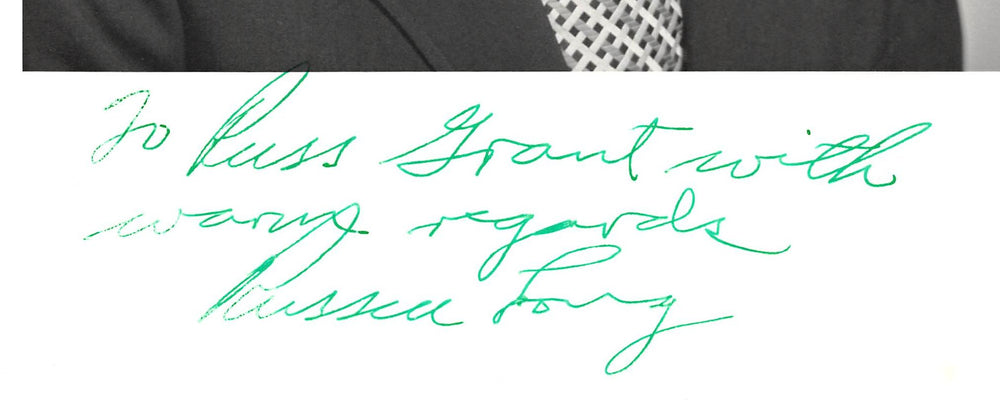 To Russ Grant with
warm regards
Russell Long